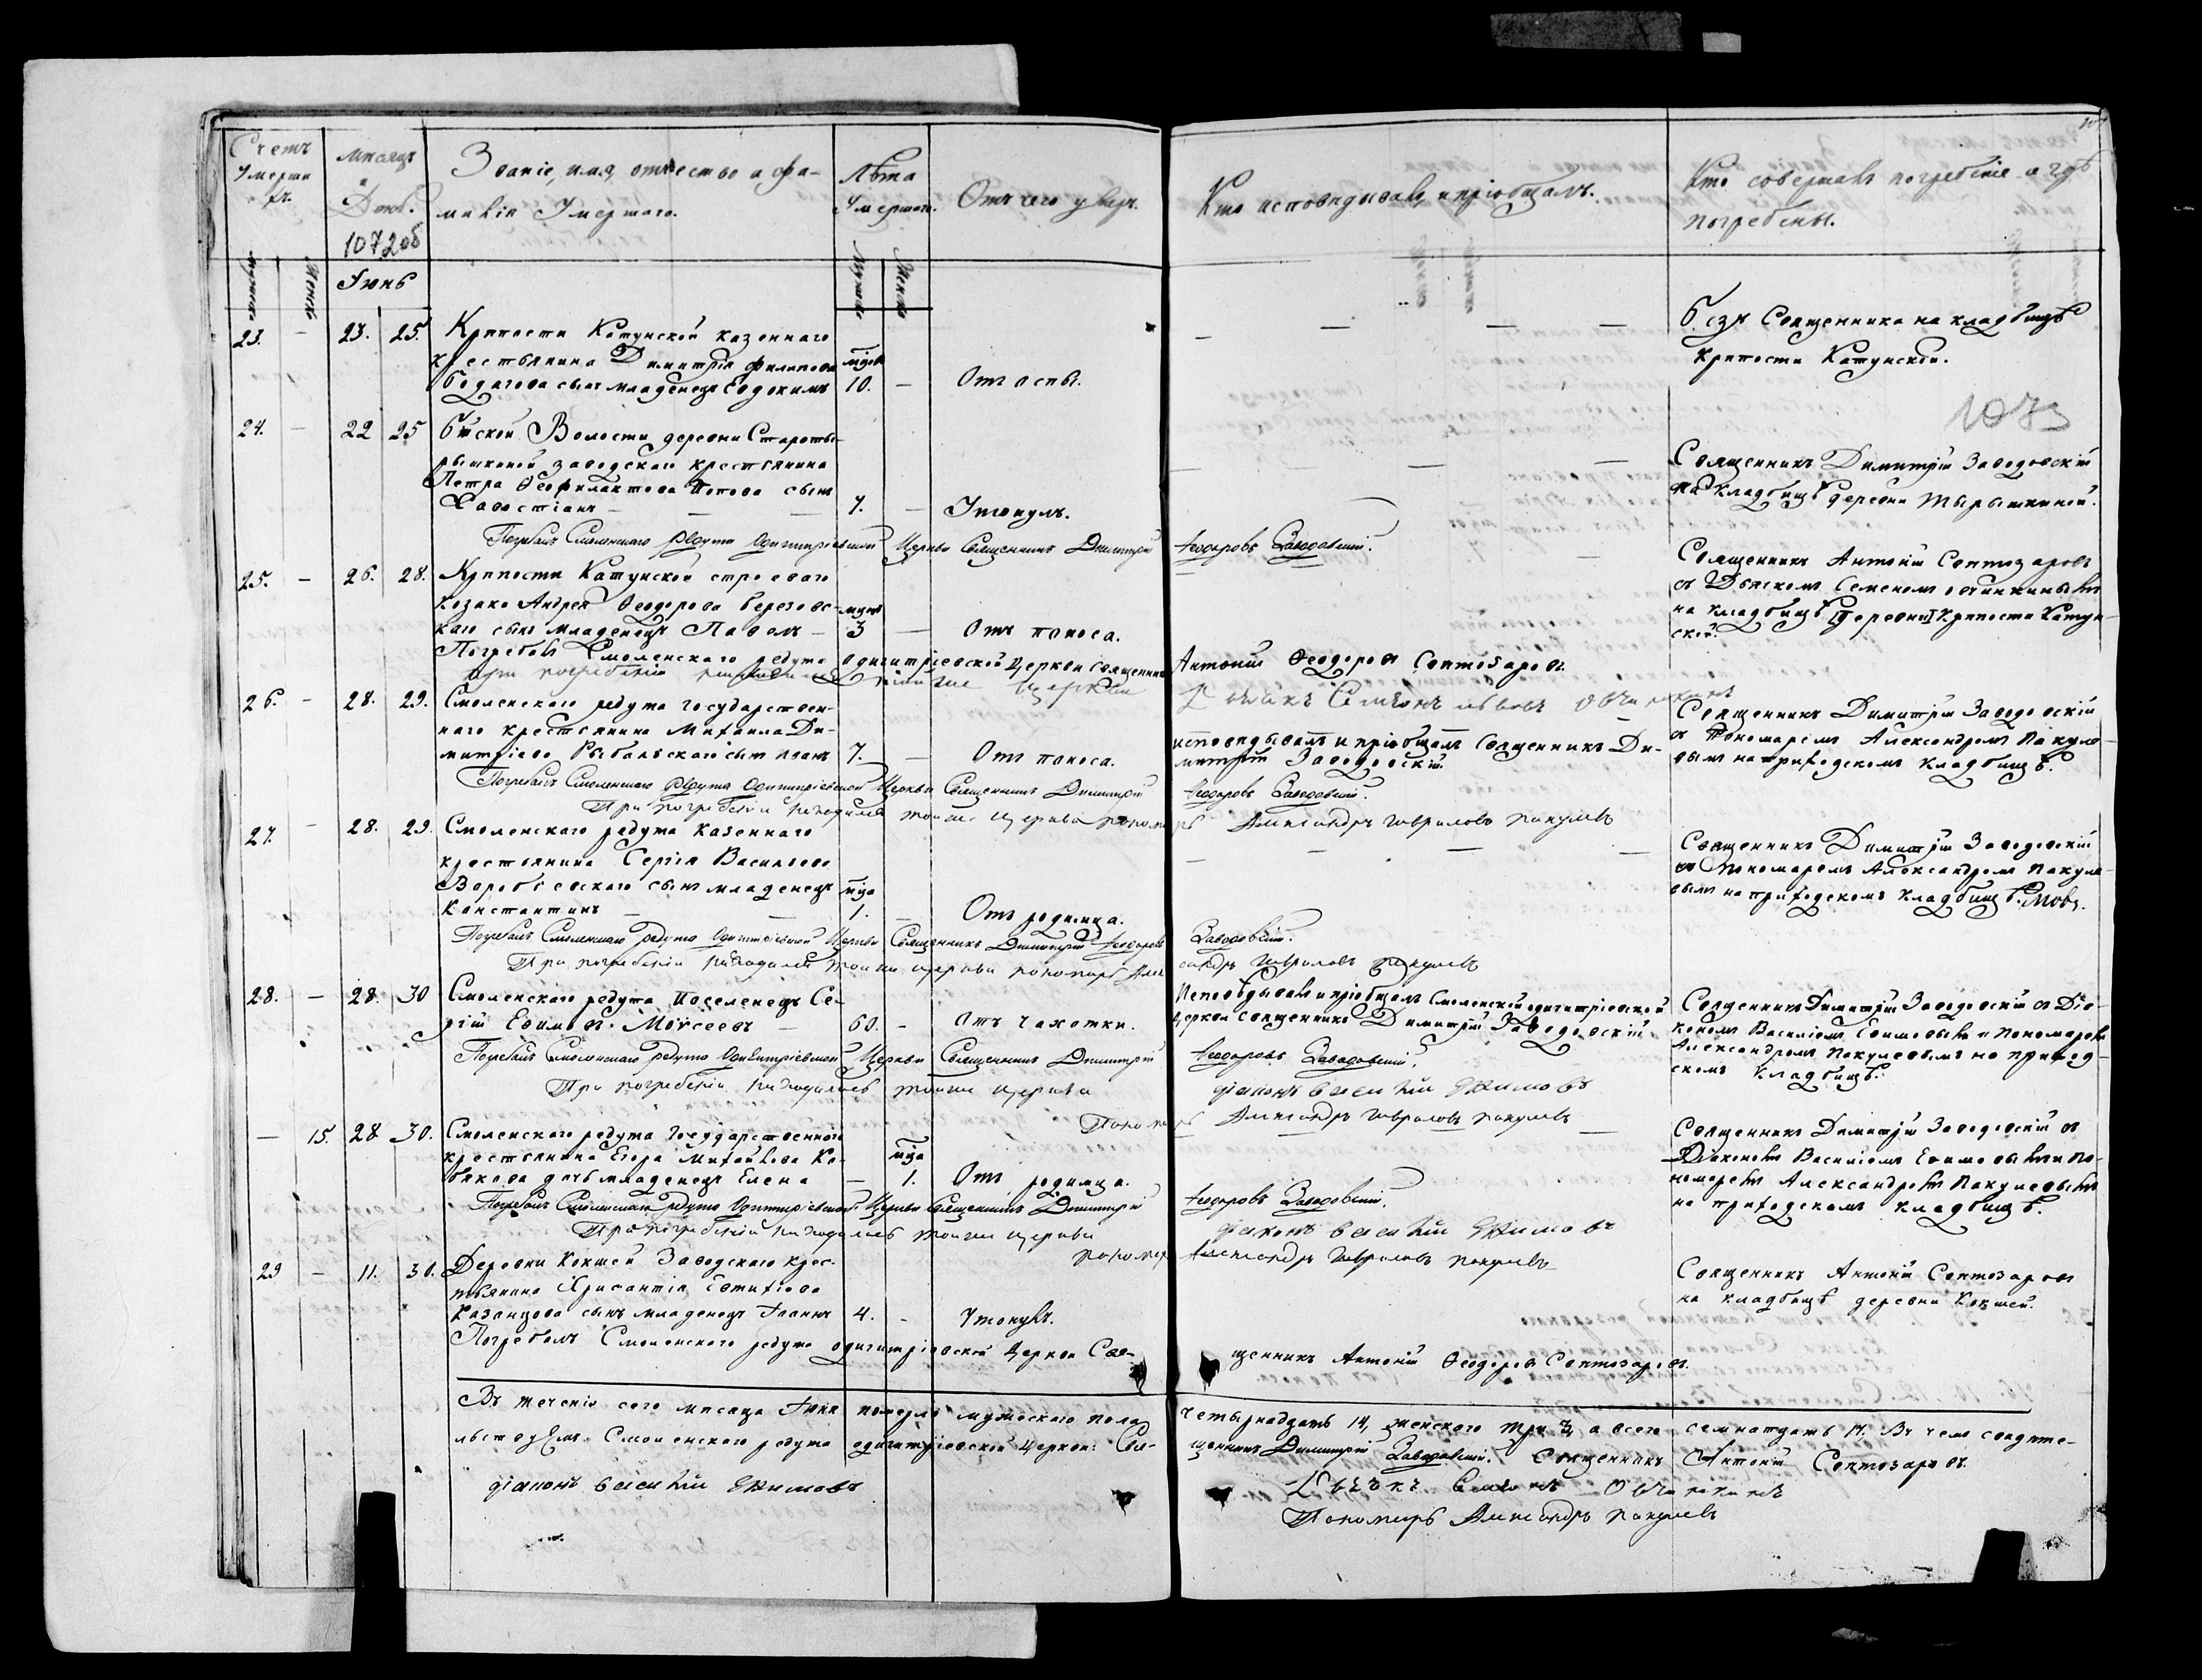 Счетъ Умерши хъ.
Мѣсяцъ и Дни.
Званіе, имя, отчество и фа-
милія Умершаго.
Лѣта Умершаго.
Отъ чего умеръ.
Кто исповѣдывалъ и пріобщалъ.
Кто совершалъ погребеніе и гдѣ
погребены.
1072об
Мужеска Женска
Іюнь
Мужеска Женска
23. — 23. 25. Крѣпости Катунской казеннаго
крестьянина Димитрія Филипова мцов
Бодагова сынъ младенецъ Евдокимъ 10. — Отъ оспы.
— — — —
Безъ Священника на кладбищѣ
крѣпости Катунской.
1073
24. — 22 25 Бійской Волости деревни Староты-
рышкиной заводскаго крестьянина
Петра Ѳеофилактова Попова сынъ
Савостіанъ — — — 7. — Утонулъ.
— — —
Священникъ Димитрій Заводовскій
на кладбищѣ деревни Тырышкиной.
Погребалъ Смоленскаго Редута Одигитріевской Церкви Священникъ Димитрій Ѳеодоровъ Заводовскій.
25. — 26. 28. Крѣпости Катунской строеваго
козака Андрея Ѳеодорова Березовс- мцов
каго сынъ младенецъ Павелъ — 3 — Отъ поноса.
Священникъ Антоній Сентозаровъ
съ Дьячкомъ Семеномъ Овчинкинымъ
на кладбищѣ [деревни] крѣпости Катун-
ской.
Погребалъ Смоленскаго редута одигитріевской Церкви Священникъ Антоній Ѳеодоровъ Сентозаровъ.
При погребеніи находился тойже Церкви Дьячекъ Семіонъ Овчинкинъ
26. — 28. 29. Смоленскаго редута Государствен-
наго крестьянина Михаила Ди-
митріева Рыбальскаго сынъ Иванъ 7. — Отъ поноса.
исповѣдывалъ и пріобщалъ Священникъ Ди-
митрій Заводовскій.
Священникъ Димитрій Заводовскій
съ Пономаремъ Александромъ Пакуле-
вымъ на приходскомъ кладбищѣ.
Погребалъ Смоленскаго Редута Одигитріевской Церкви Священникъ Димитрій Ѳеодоровъ Заводовскій.
При погребеніи находился тойже Церкви пономарь Александръ Гавриловъ Пакулевъ
27. — 28. 29. Смоленскаго редута казеннаго
крестьянина Сергія Васильева
Воробіевскаго сынъ младенецъ мца
Константинъ — — 1. — Отъ родимца.
— — — —
Священникъ Димитрій Заводовскій
съ Пономаремъ Александромъ Пакуле-
вымъ на приходскомъ кладбищѣ.
Погребалъ Смоленскаго редута Одигитріевской Церкви Священникъ Димитрій Ѳеодоровъ Заводовскій.
При погребеніи находился тойже церкви пономарь Александръ Гавриловъ Пакулевъ
28. — 28. 30 Смоленскаго редута Поселенецъ Се-
ргій Ефимовъ Моѵсеевъ — 60. — Отъ чахотки.
Исповѣдывалъ и пріобщалъ Смоленской одигитріевской
Церкви Священникъ Димитрій Заводовскій.
Священникъ Димитрій Заводовскій съ Діа-
кономъ Василіемъ Ефимовымъ и пономаремъ
Александромъ Пакулевымъ на приход-
скомъ кладбищѣ.
Погребалъ Смоленскаго редута Одигитріевской Церкви Священникъ Димитрій Ѳеодоровъ Заводовскій.
При погребеніи находились тойже церкви діаконъ Василій Ефимовъ
Пономарь Александръ Гавриловъ Пакулевъ
— 15. 28 30. Смоленскаго редута Государственнаго
крестьянина Егора Михайлова мца
дочь младенецъ Елена — 1. Отъ родимца.
Священникъ Димитрій Заводовскій съ
Діакономъ Василіемъ Ефимовымъ и По-
номаремъ Александромъ Пакулевымъ
на приходскомъ кладбищѣ.
Погребалъ Смоленскаго Редута Одигитріевской Церкви Священникъ Димитрій Ѳеодоровъ Заводовскій.
При погребеніи находились тойже церкви діаконъ Василій Ефимовъ
пономарь Александръ Гавриловъ Пакулевъ
29 — 11. 30. Деревни Кокшей Заводскаго крес-
тьянина Хрисантія Евтихіева
Казанцова сынъ младенецъ Іоаннъ 4. — Утонулъ.
Священникъ Антоній Сентозаровъ
на кладбищѣ деревни Кокшей.
Погребалъ Смоленскаго редута одигитріевской Церкви Свя- щенникъ Антоній Ѳеодоровъ Сентозаровъ.
Въ теченіи сего мѣсяца Іюня померло мужескаго пола четырнадцать 14, женскаго три 3, а всего семнатцать 17, Въ чемъ свидѣте-
льствуемъ Смоленскаго редута одигитріевской Церкви: Свя- щенникъ Димитрій Заводовскій. Священникъ Антоній Сентозаровъ.
діаконъ Василій Ефимовъ
Дьячекъ Семіонъ Овчинкинъ
Пономарь Александръ Пакулевъ